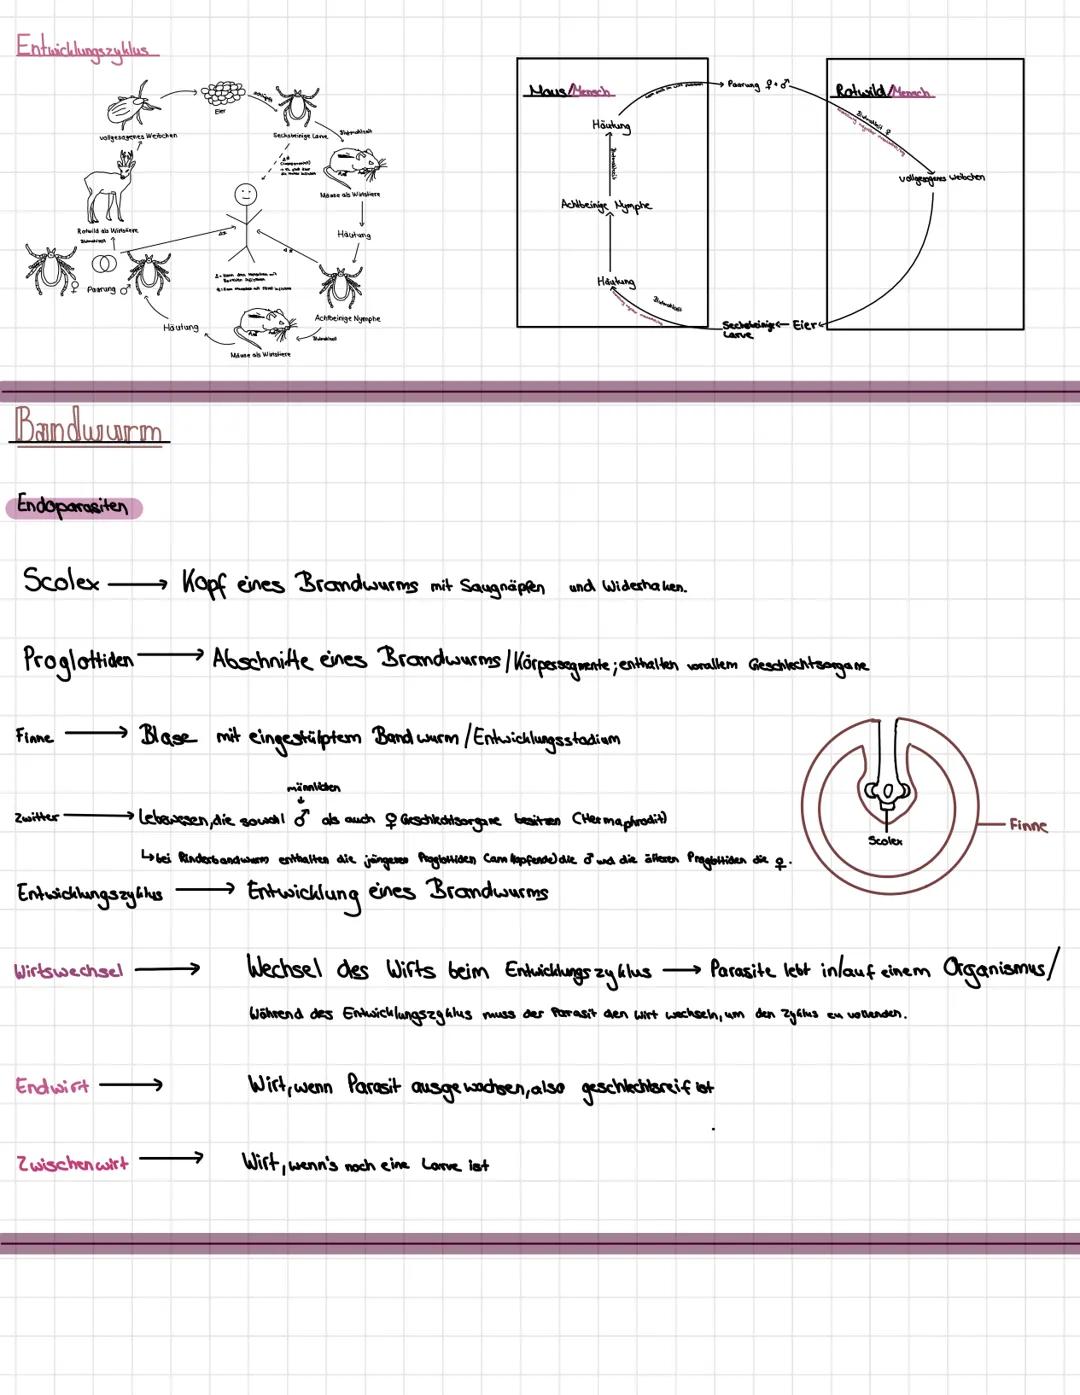 Entwicklungszyklus
vollgesogenes Weibchen
Eier
Sechsbeinige Larve
Blutmahlzeit
Mäuse als Wirtstiere
Häutung
Achtbeinige Nymphe
Blutmahlzeit
Mäuse als Wirtstiere
Häutung
Paarung ♂
♀
Blutmahlzeit
Rotwild als Wirtstiere
Maus/Mensch
Häutung
Blutmahlzeit
Achtbeinige Nymphe
Häutung
Blutmahlzeit
Paarung ♀+♂
Rotwild/Mensch
Blutmahlzeit ♀
vollgesogenes Weibchen
Sechsbeinige ← Eier
Larve
Bandwurm
Endoparasiten
Scolex → Kopf eines Brandwurms mit Saugnäpfen und Widerhaken.
Proglottiden → Abschnitte eines Brandwurms/Körpersegmente; enthalten vorallem Geschlechtsorgane
Finne → Blase mit eingestülptem Bandwurm/Entwicklungsstadium
männlichen
Zwitter → Lebewesen, die sowohl ♂ als auch ♀ Geschlechtsorgane besitzen (Hermaphrodit)
↳ bei Rinderbandwurm enthalten die jüngeren Proglottiden (am Kopfende) die ♂ und die älteren Proglottiden die ♀.
Scolex
Finne
Entwicklungszyklus → Entwicklung eines Brandwurms
Wirtswechsel → Wechsel des Wirts beim Entwicklungszyklus → Parasite lebt in/auf einem Organismus/
Während des Entwicklungszyklus muss der Parasit den Wirt wechseln, um den Zyklus zu vollenden.
Endwirt → Wirt, wenn Parasit ausgewachsen, also geschlechtsreif ist
Zwischenwirt → Wirt, wenn's noch eine Larve ist